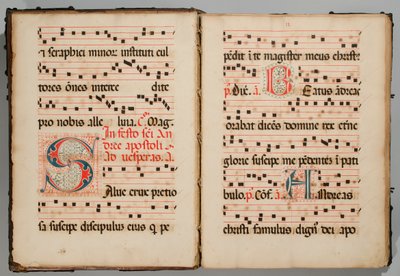 i seraphici minor instituti cul
tores ōnes interce dite
pro nobis alle luia. Mag.
In festo sci An
dree apostoli
Ad uesperas. a.
Salue crux pretio
sa suscipe discipulus eius q̄ pe
pēdit ī te magister meus christꝰ
p. Dix̄. a. Beatus ādreas
orabat dicēs domine rex etne
glorie suscipe me pēdentē ī pati
bulo. p. Cōf. a. Andreas
christi famulus dignꝰ dei apo